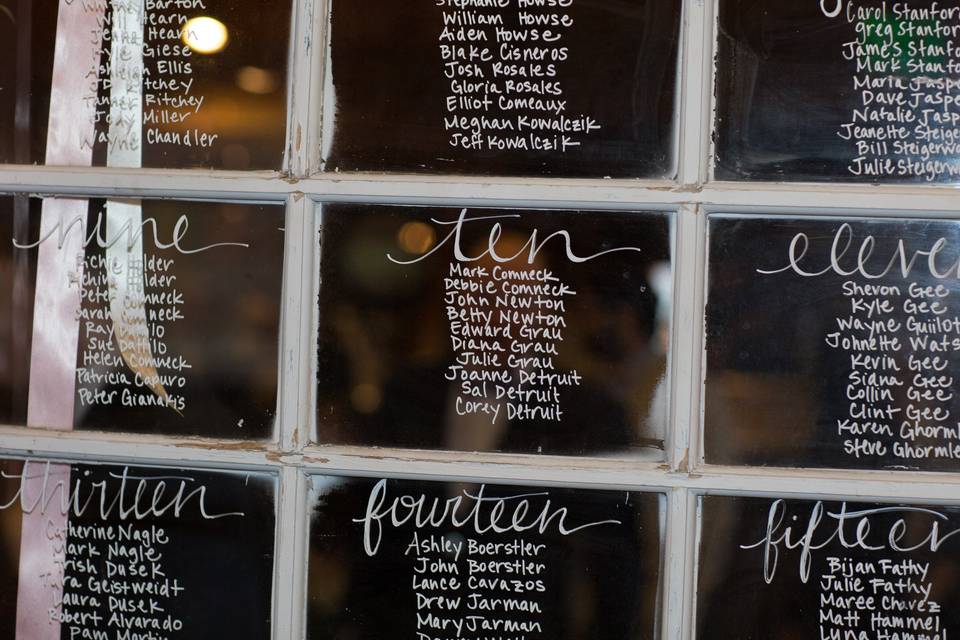 Barton
Hearn
Jenna Hearn
Kyle Giese
Ashleigh Ellis
JD Ritchey
Tanner Ritchey
Jody Miller
Wayne Chandler
Stephanie Howse
William Howse
Aiden Howse
Blake Cisneros
Josh Rosales
Gloria Rosales
Elliot Comeaux
Meghan Kowalczik
Jeff Kowalczik
Carol Stanfor
greg Stanfor
James Stanfo
Mark Stanfo
Maria Jaspe
Dave Jaspe
Natalie Jasp
Jeanette Steige
Bill Steigerw
Julie Steigerw
nine
Richie
Peter Comneck
Sarah Comneck
Ray Dattilo
Sue Dattilo
Helen Comneck
Patricia Capuro
Peter Gianakis
ten
Mark Comneck
Debbie Comneck
John Newton
Betty Newton
Edward Grau
Diana Grau
Julie Grau
Joanne Detruit
Sal Detruit
Corey Detruit
eleve
Shevon Gee
Kyle Gee
Wayne Guillot
Johnette Wats
Kevin Gee
Sidna Gee
Collin Gee
Clint Gee
Karen Ghorml
Steve Ghormle
thirteen
Catherine Nagle
Mark Nagle
Trish Dusek
Tara Geistweidt
Laura Dusek
Robert Alvarado
Pam Martin
fourteen
Ashley Boerstler
John Boerstler
Lance Cavazos
Drew Jarman
Mary Jarman
fifteen
Bijan Fathy
Julie Fathy
Maree Chavez
Matt Hammel
Hammel